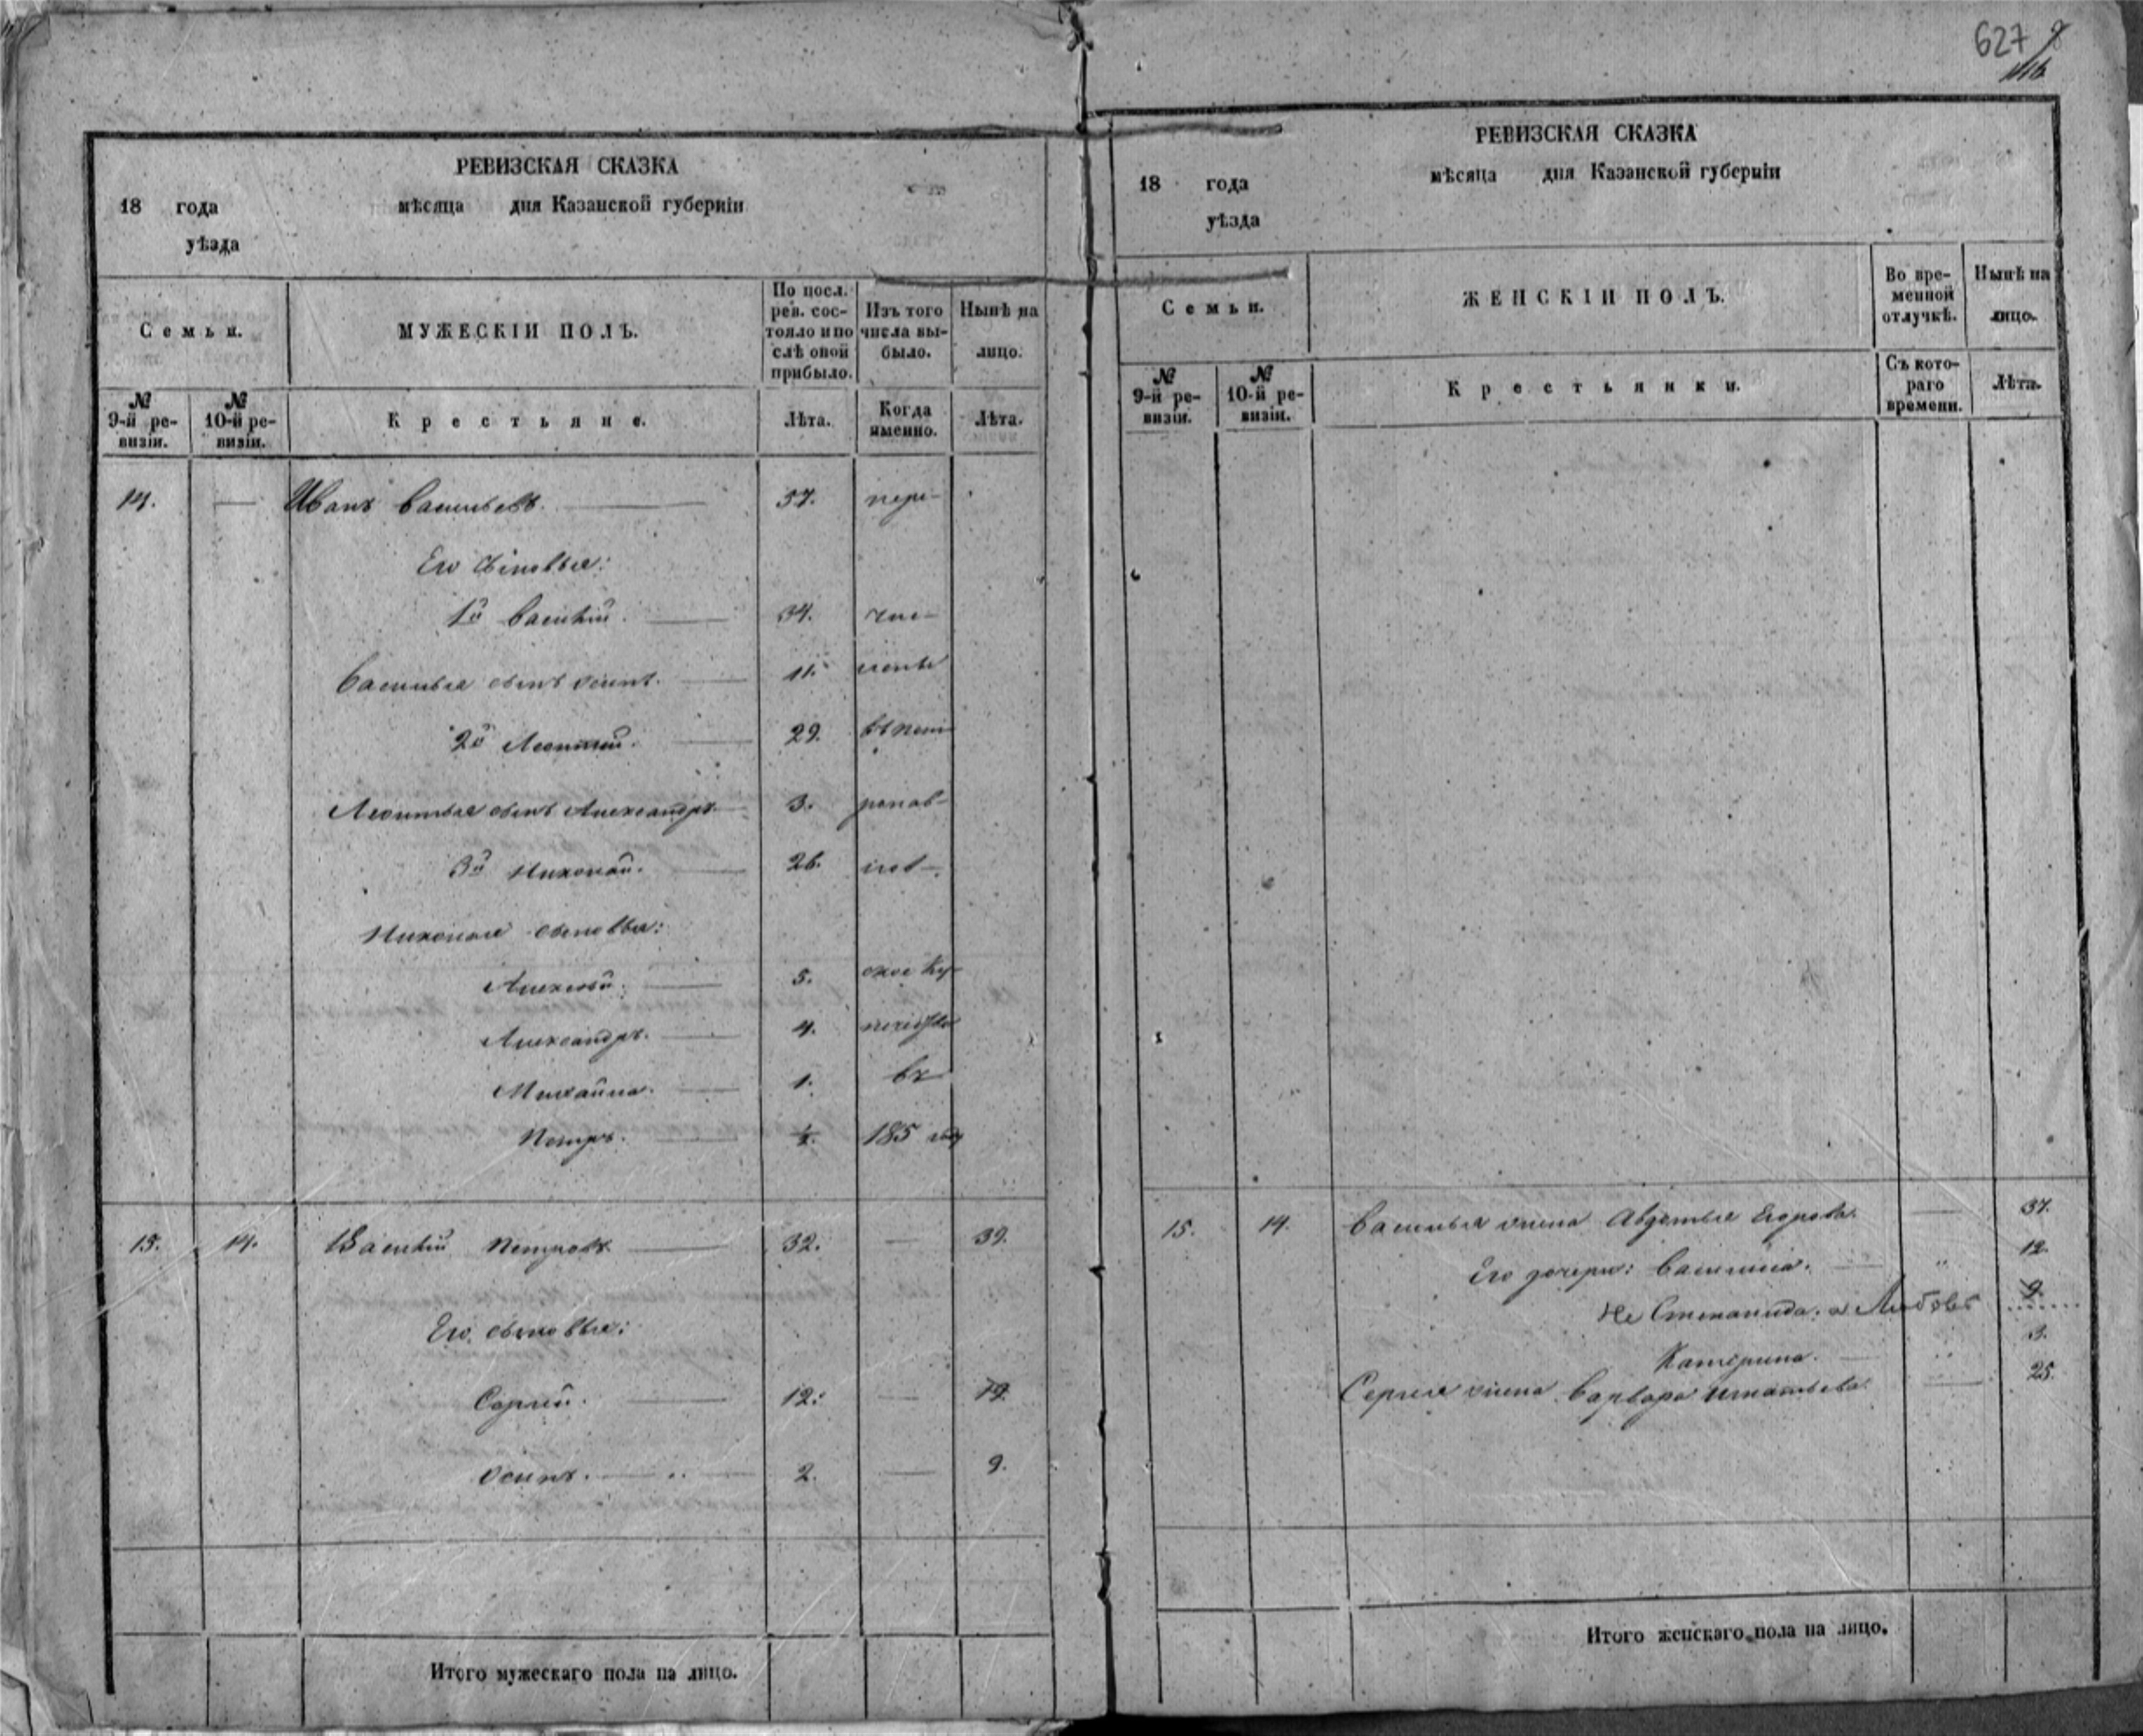 627
РЕВИЗСКАЯ СКАЗКА
18 года мѣсяца дня Казанской губерніи
уѣзда
Семьи.
МУЖЕСКІЙ ПОЛЪ.
По посл. рев. состояло и послѣ оной прибыло.
Изъ того числа выбыло.
Нынѣ на лицо.
№ 9-й ревизіи.
№ 10-й ревизіи.
Крестьяне.
Лѣта.
Когда именно.
Лѣта.
14. — Иванъ Васильевъ. 57. пере-
Его сыновья:
1й Василій. 34. чис-
Васильевъ сынъ Осипъ. 11. лены
2й Леонтий. 29. въ
Леонтьевъ сынъ Александръ 3.
3й Николай. 26.
Николая сыновья:
Алексѣй. 5. ское Ку-
Александръ. 4. печество
Михайла. 1. въ
Петръ. ½. 185 году
15. 14. Василій Петровъ. 32. — 39.
Его сыновья:
Сергій. 12. — 19.
Осипъ. 2. — 9.
Итого мужескаго пола на лицо.
РЕВИЗСКАЯ СКАЗКА
18 года мѣсяца дня Казанской губерніи
уѣзда
Семьи.
ЖЕНСКІЙ ПОЛЪ.
Во временной отлучкѣ.
Нынѣ на лицо.
№ 9-й ревизіи.
№ 10-й ревизіи.
Крестьянки.
Съ котораго времени.
Лѣта.
15. 14. Васильева жена Авдотья Егорова. — 37.
Его дочери: Василиса. " 12.
Не Степанида. а Любовь 9.
Катерина. " 3.
Сергея жена Варвара Игнатьева. — 25.
Итого женскаго пола на лицо.